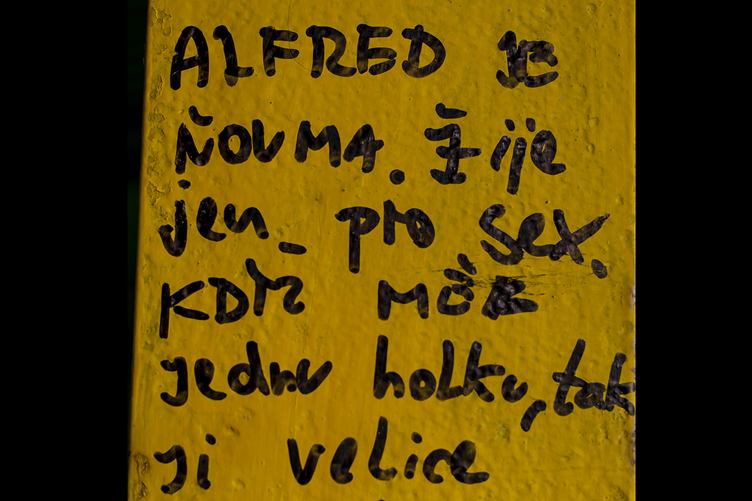 ALFRED JE
ŇOUMA. Žije
jen pro sex.
KDYŽ
jednu holku, tak
ji velice